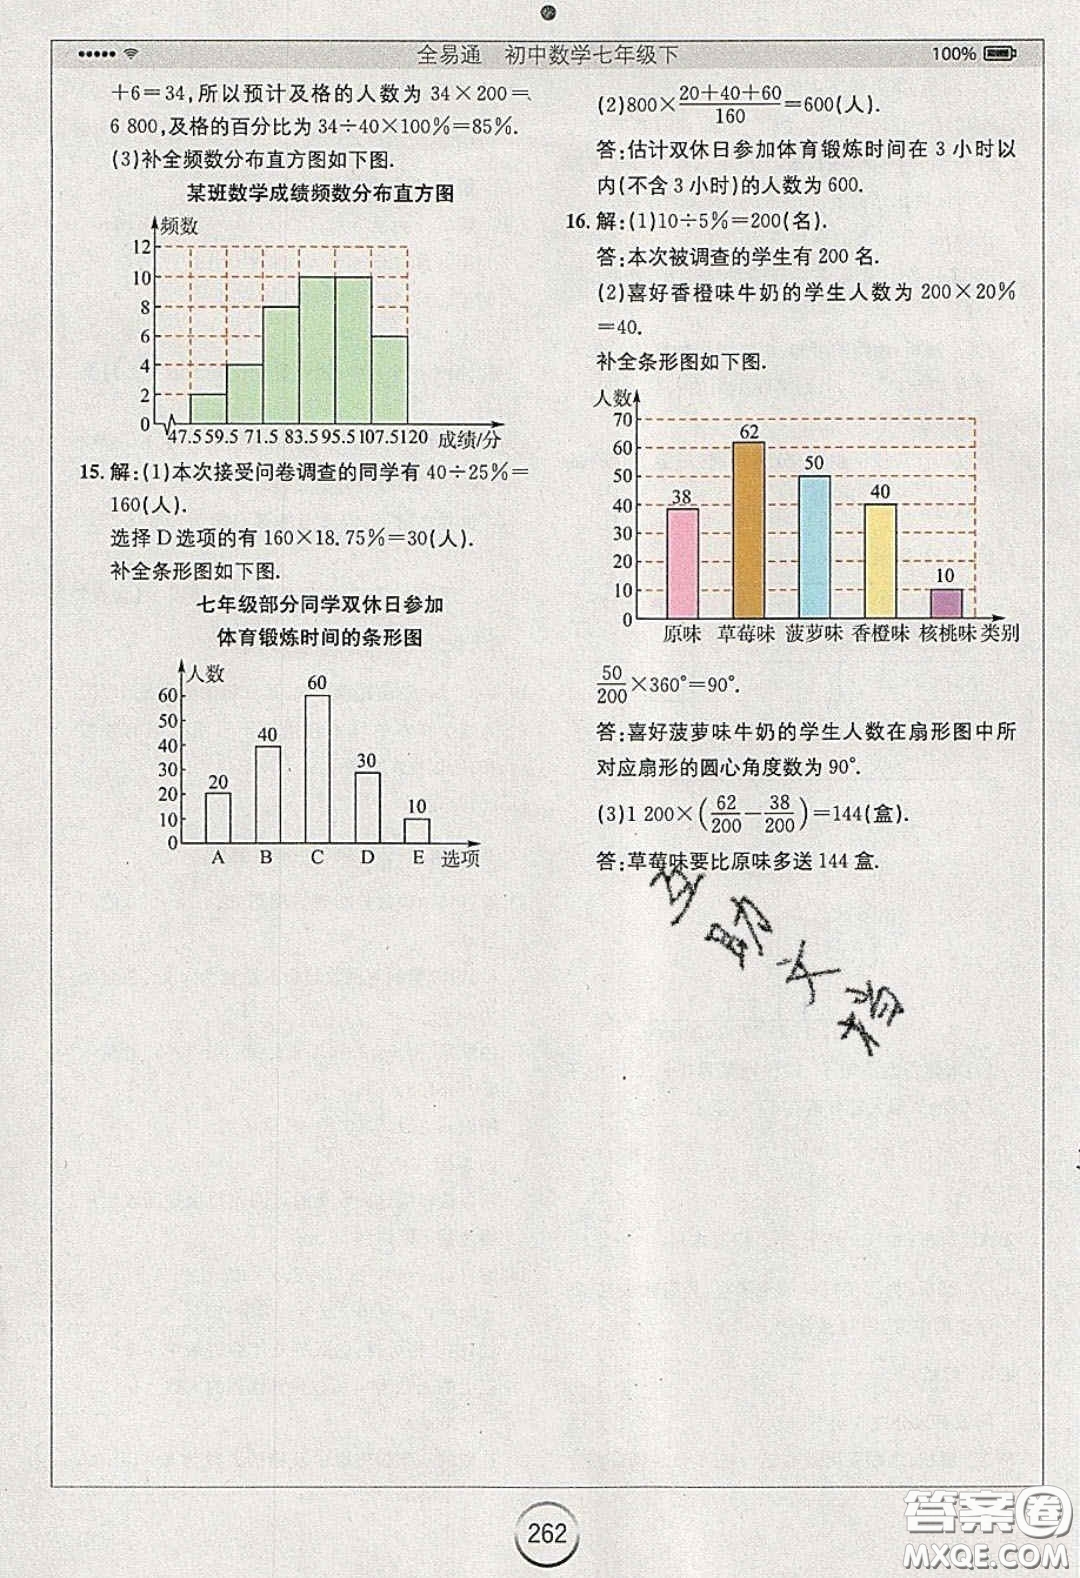 全易通 初中数学七年级下
100%
+6=34,所以预计及格的人数为 34×200=
6 800,及格的百分比为 34÷40×100%=85%.
(3)补全频数分布直方图如下图.
某班数学成绩频数分布直方图
频数
12
10
8
6
4
2
0
47.5 59.5 71.5 83.5 95.5 107.5 120 成绩/分
15. 解:(1)本次接受问卷调查的同学有 40÷25%=
160(人).
选择 D 选项的有 160×18.75%=30(人).
补全条形图如下图.
七年级部分同学双休日参加
体育锻炼时间的条形图
人数
60
50
40
30
20
10
0
20 40 60 30 10
A B C D E 选项
(2)800×(20+40+60)/160=600(人).
答:估计双休日参加体育锻炼时间在 3 小时以
内(不含 3 小时)的人数为 600.
16. 解:(1)10÷5%=200(名).
答:本次被调查的学生有 200 名.
(2)喜好香橙味牛奶的学生人数为 200×20%
=40.
补全条形图如下图.
人数
70
60
50
40
30
20
10
0
38 62 50 40 10
原味 草莓味 菠萝味 香橙味 核桃味 类别
50/200×360°=90°.
答:喜好菠萝味牛奶的学生人数在扇形图中所
对应扇形的圆心角度数为 90°.
(3)1 200×(62/200-38/200)=144(盒).
答:草莓味要比原味多送 144 盒.
互助文档
262
答案圈
MXQE.COM